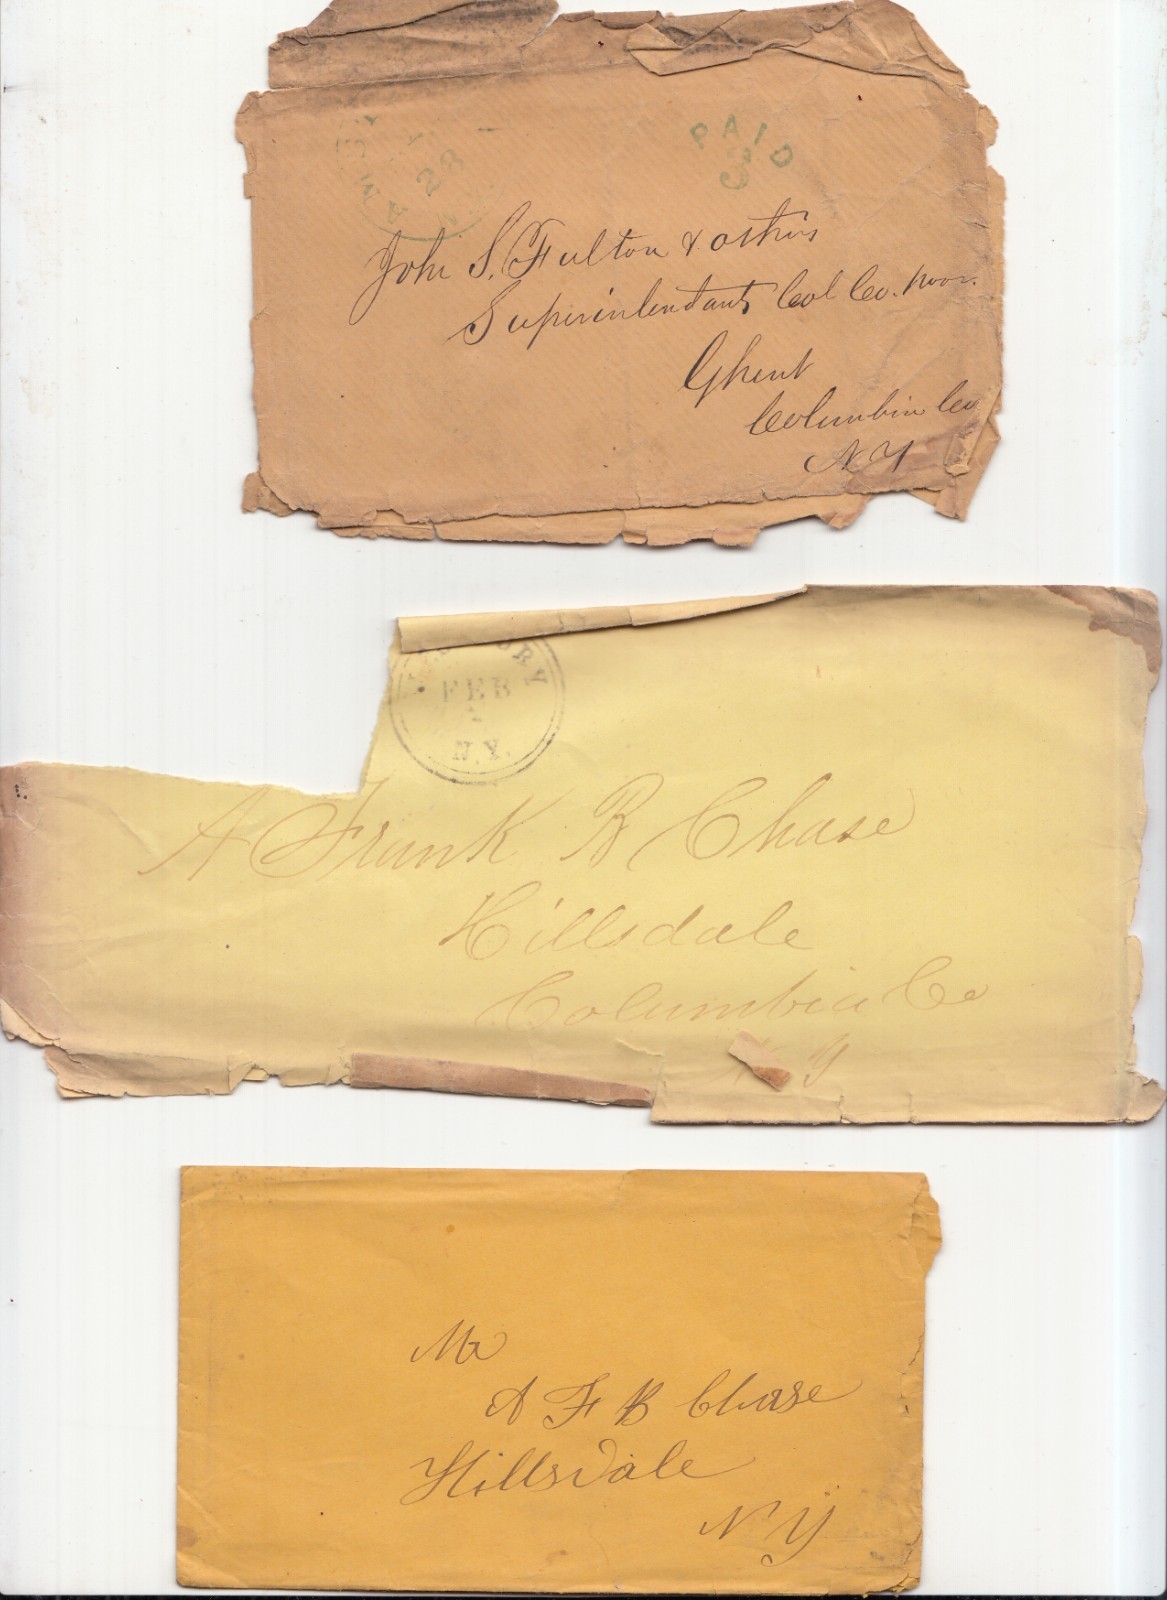 PAID
3
28
John S. Fulton & othirs
Superintendants Col Co. poor.
Ghent
Columbia Co
N Y
FEB
N.Y.
A Frank B Chase
Hillsdale
Columbia Co
N Y
Mr
A F B Chase
Hillsdale
N Y